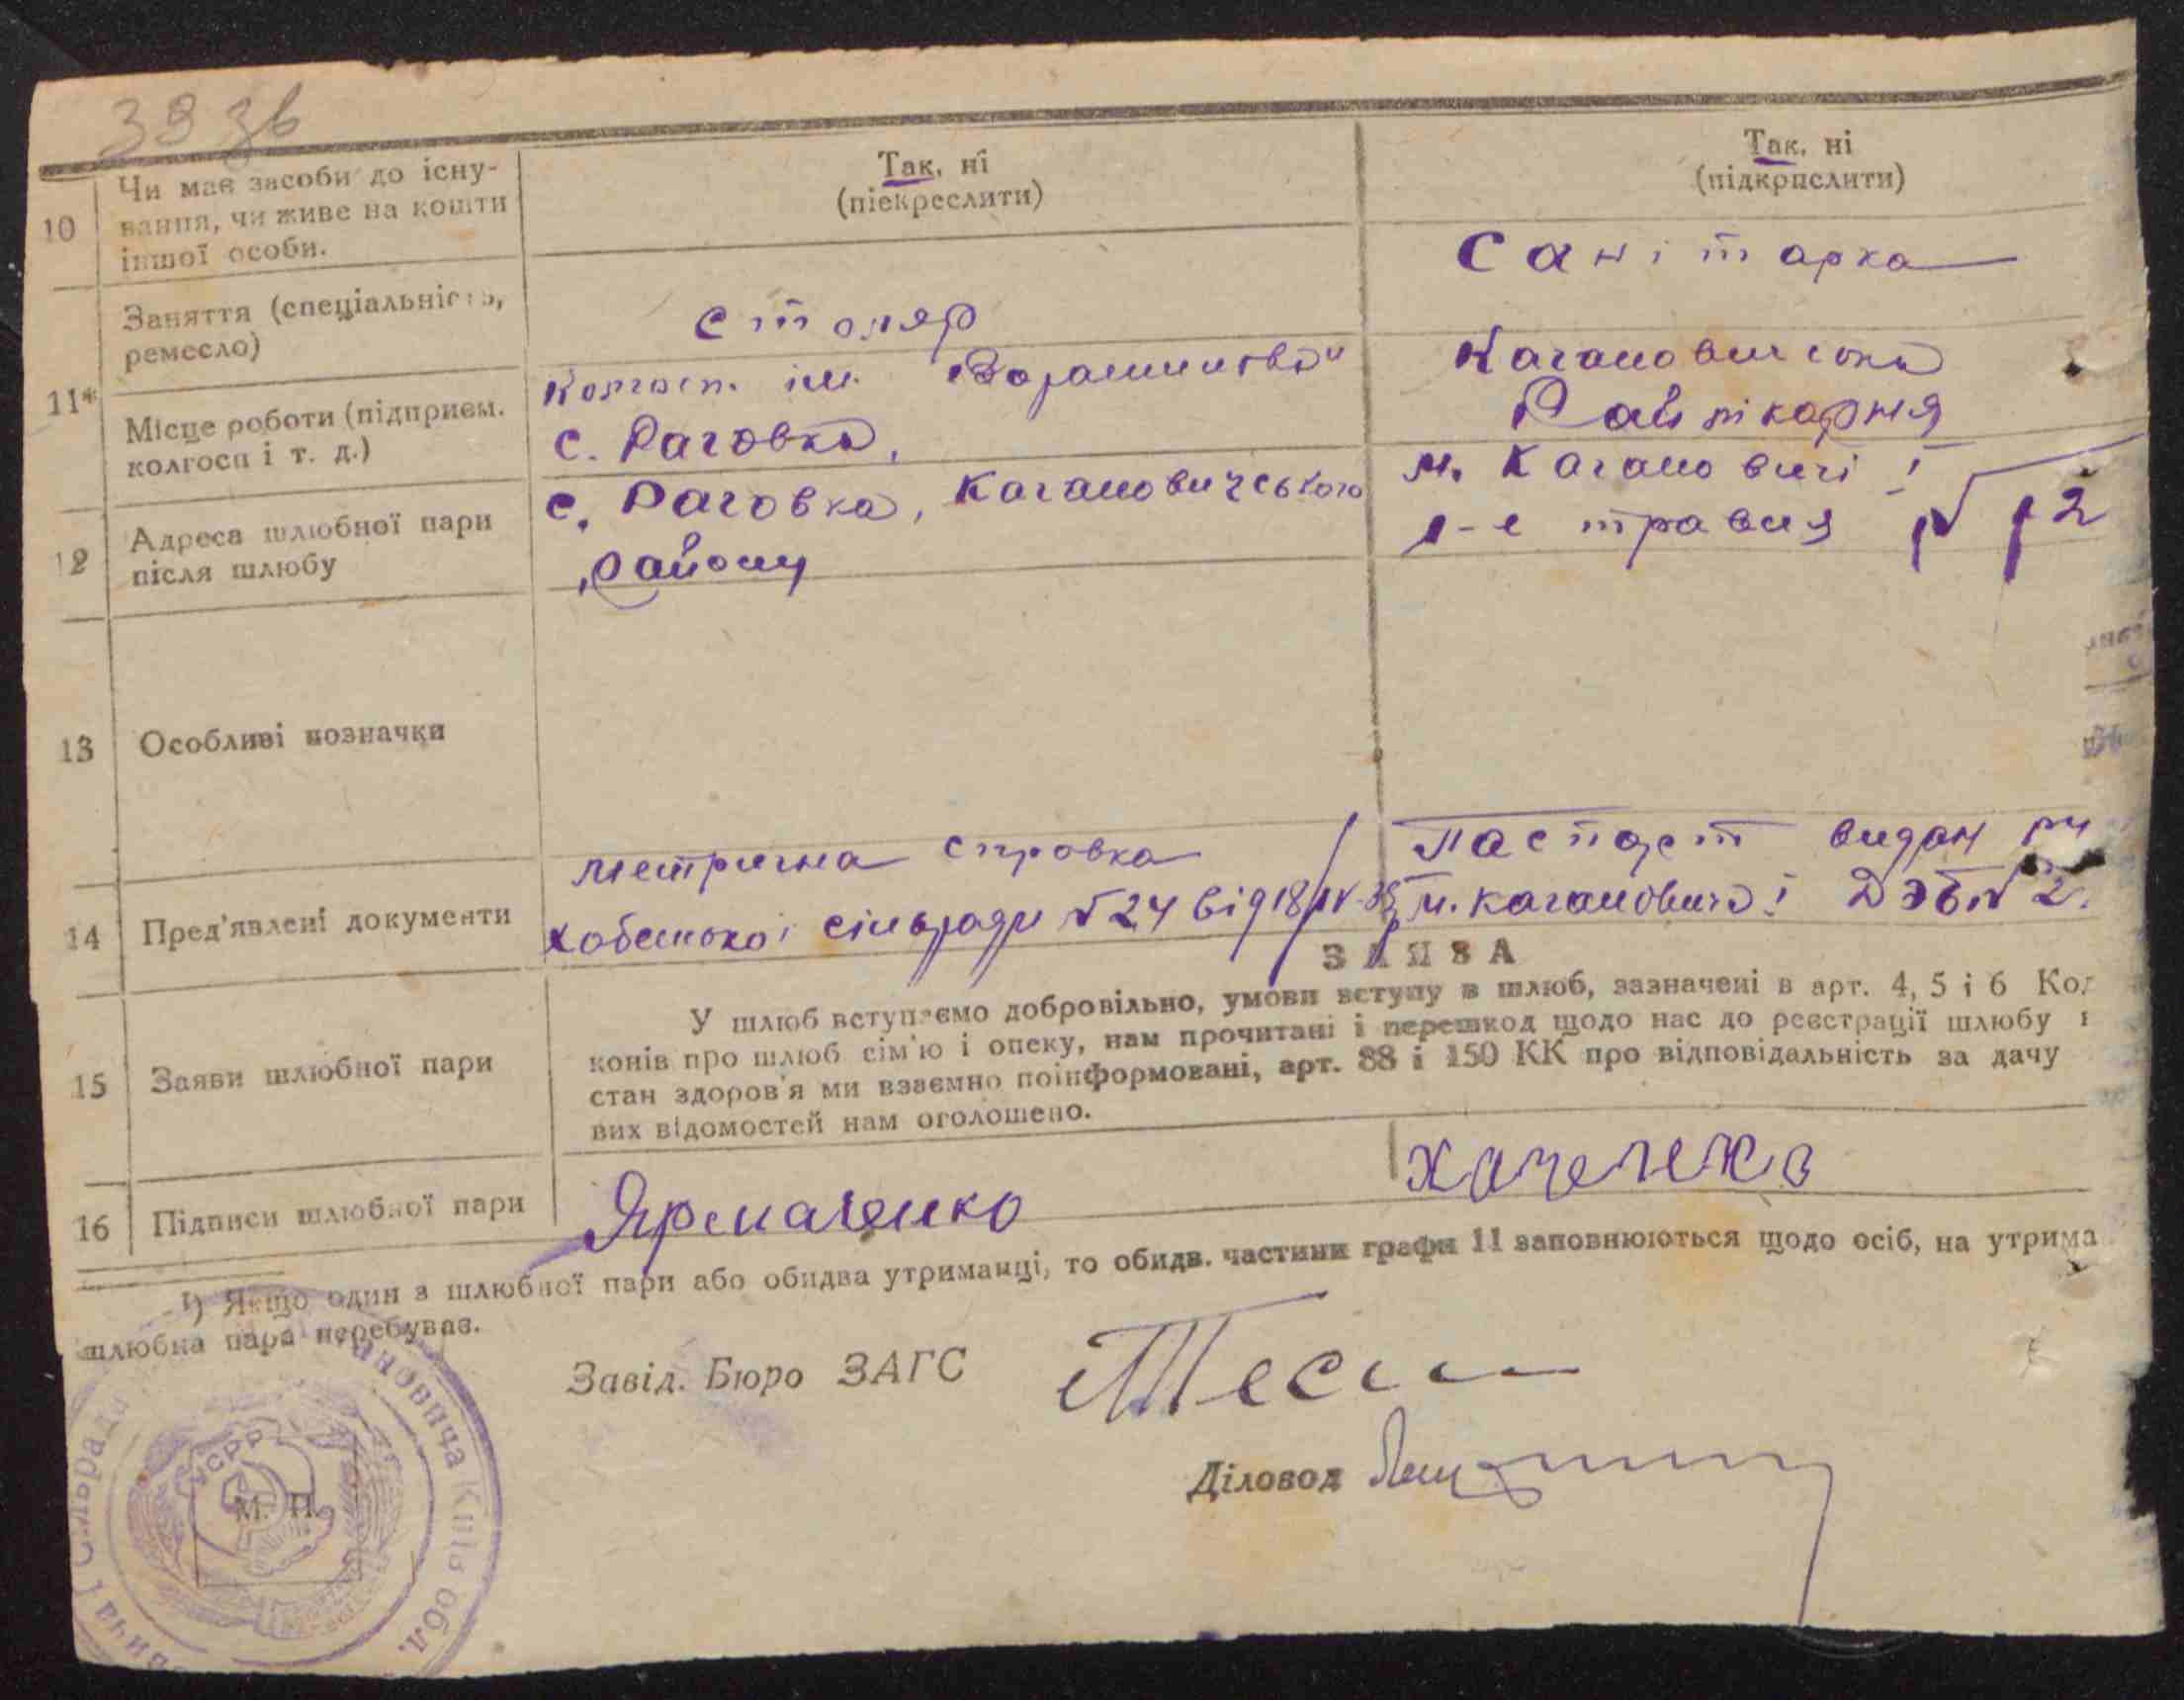 39 зв
10
Чи має засоби до існу-
вання, чи живе на кошти
іншої особи.
Так, ні
(піекреслити)
Так, ні
(підкрпслити)
11*
Заняття (спеціальність,
ремесло)
столяр
Санітарка
Місце роботи (підприєм.
колгосп і т. д.)
Колгосп. ім. Ворашилова"
с. Раговка,
Кагановичська
Райлікарня
12
Адреса шлюбної пари
після шлюбу
с. Раговка, Кагановичського
району
м. Кагановичі І
1-е травня № 12
13
Особливі позначки
14
Пред'явлені документи
метрична справка
сільради №24 від 18/IV-39
Паспорт видан
м. Кагановичі І ДЭБ№ 2
15
Заяви шлюбної пари
ЗАЯВА
У шлюб вступаємо добровільно, умови вступу в шлюб, зазначені в арт. 4, 5 і 6 Ко
конів про шлюб сім'ю і опеку, нам прочитані і перешкод щодо нас до реєстрації шлюбу
стан здоров'я ми взаємно поінформовані, арт. 88 і 150 КК про відповідальність за дачу
вих відомостей нам оголошено.
16
Підписи шлюбної пари
Ярмаченко
¹) Якщо один з шлюбної пари або обидва утриманці, то обидв. частини графи 11 заповнюються щодо осіб, на утрима
шлюбна пара перебуває.
Завід. Бюро ЗАГС
Діловод
М. П.
УСРР
ановича Київ обл.